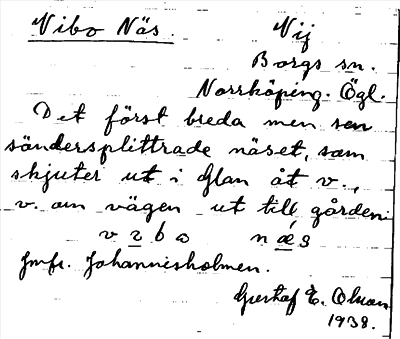 Vibo Näs.
Nij
Borgs sn.
Norrköping. Ögl.
Det först breda men sen
söndersplittrade näset, som
skjuter ut i Glan åt v.,
v. om vägen ut till gården.
Jmfr. Johannisholmen.
Gustaf E. Olsson
1938.